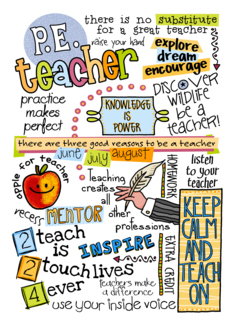 there is no substitute
for a great teacher
P.E.
teacher
raise your hand
explore
dream
encourage
practice
makes
perfect
KNOWLEDGE
IS
POWER
DISCOVER
WILDLIFE
be a
teacher!
there are three good reasons to be a teacher
june july august
apple for teacher
Teaching
creates
all
other
professions
HOMEWORK
listen
to your
teacher
recess
MENTOR
2 teach
is
INSPIRE
2 touch lives
4 ever
EXTRA CREDIT
KEEP
CALM
AND
TEACH
ON
teachers make
a difference
use your inside voice